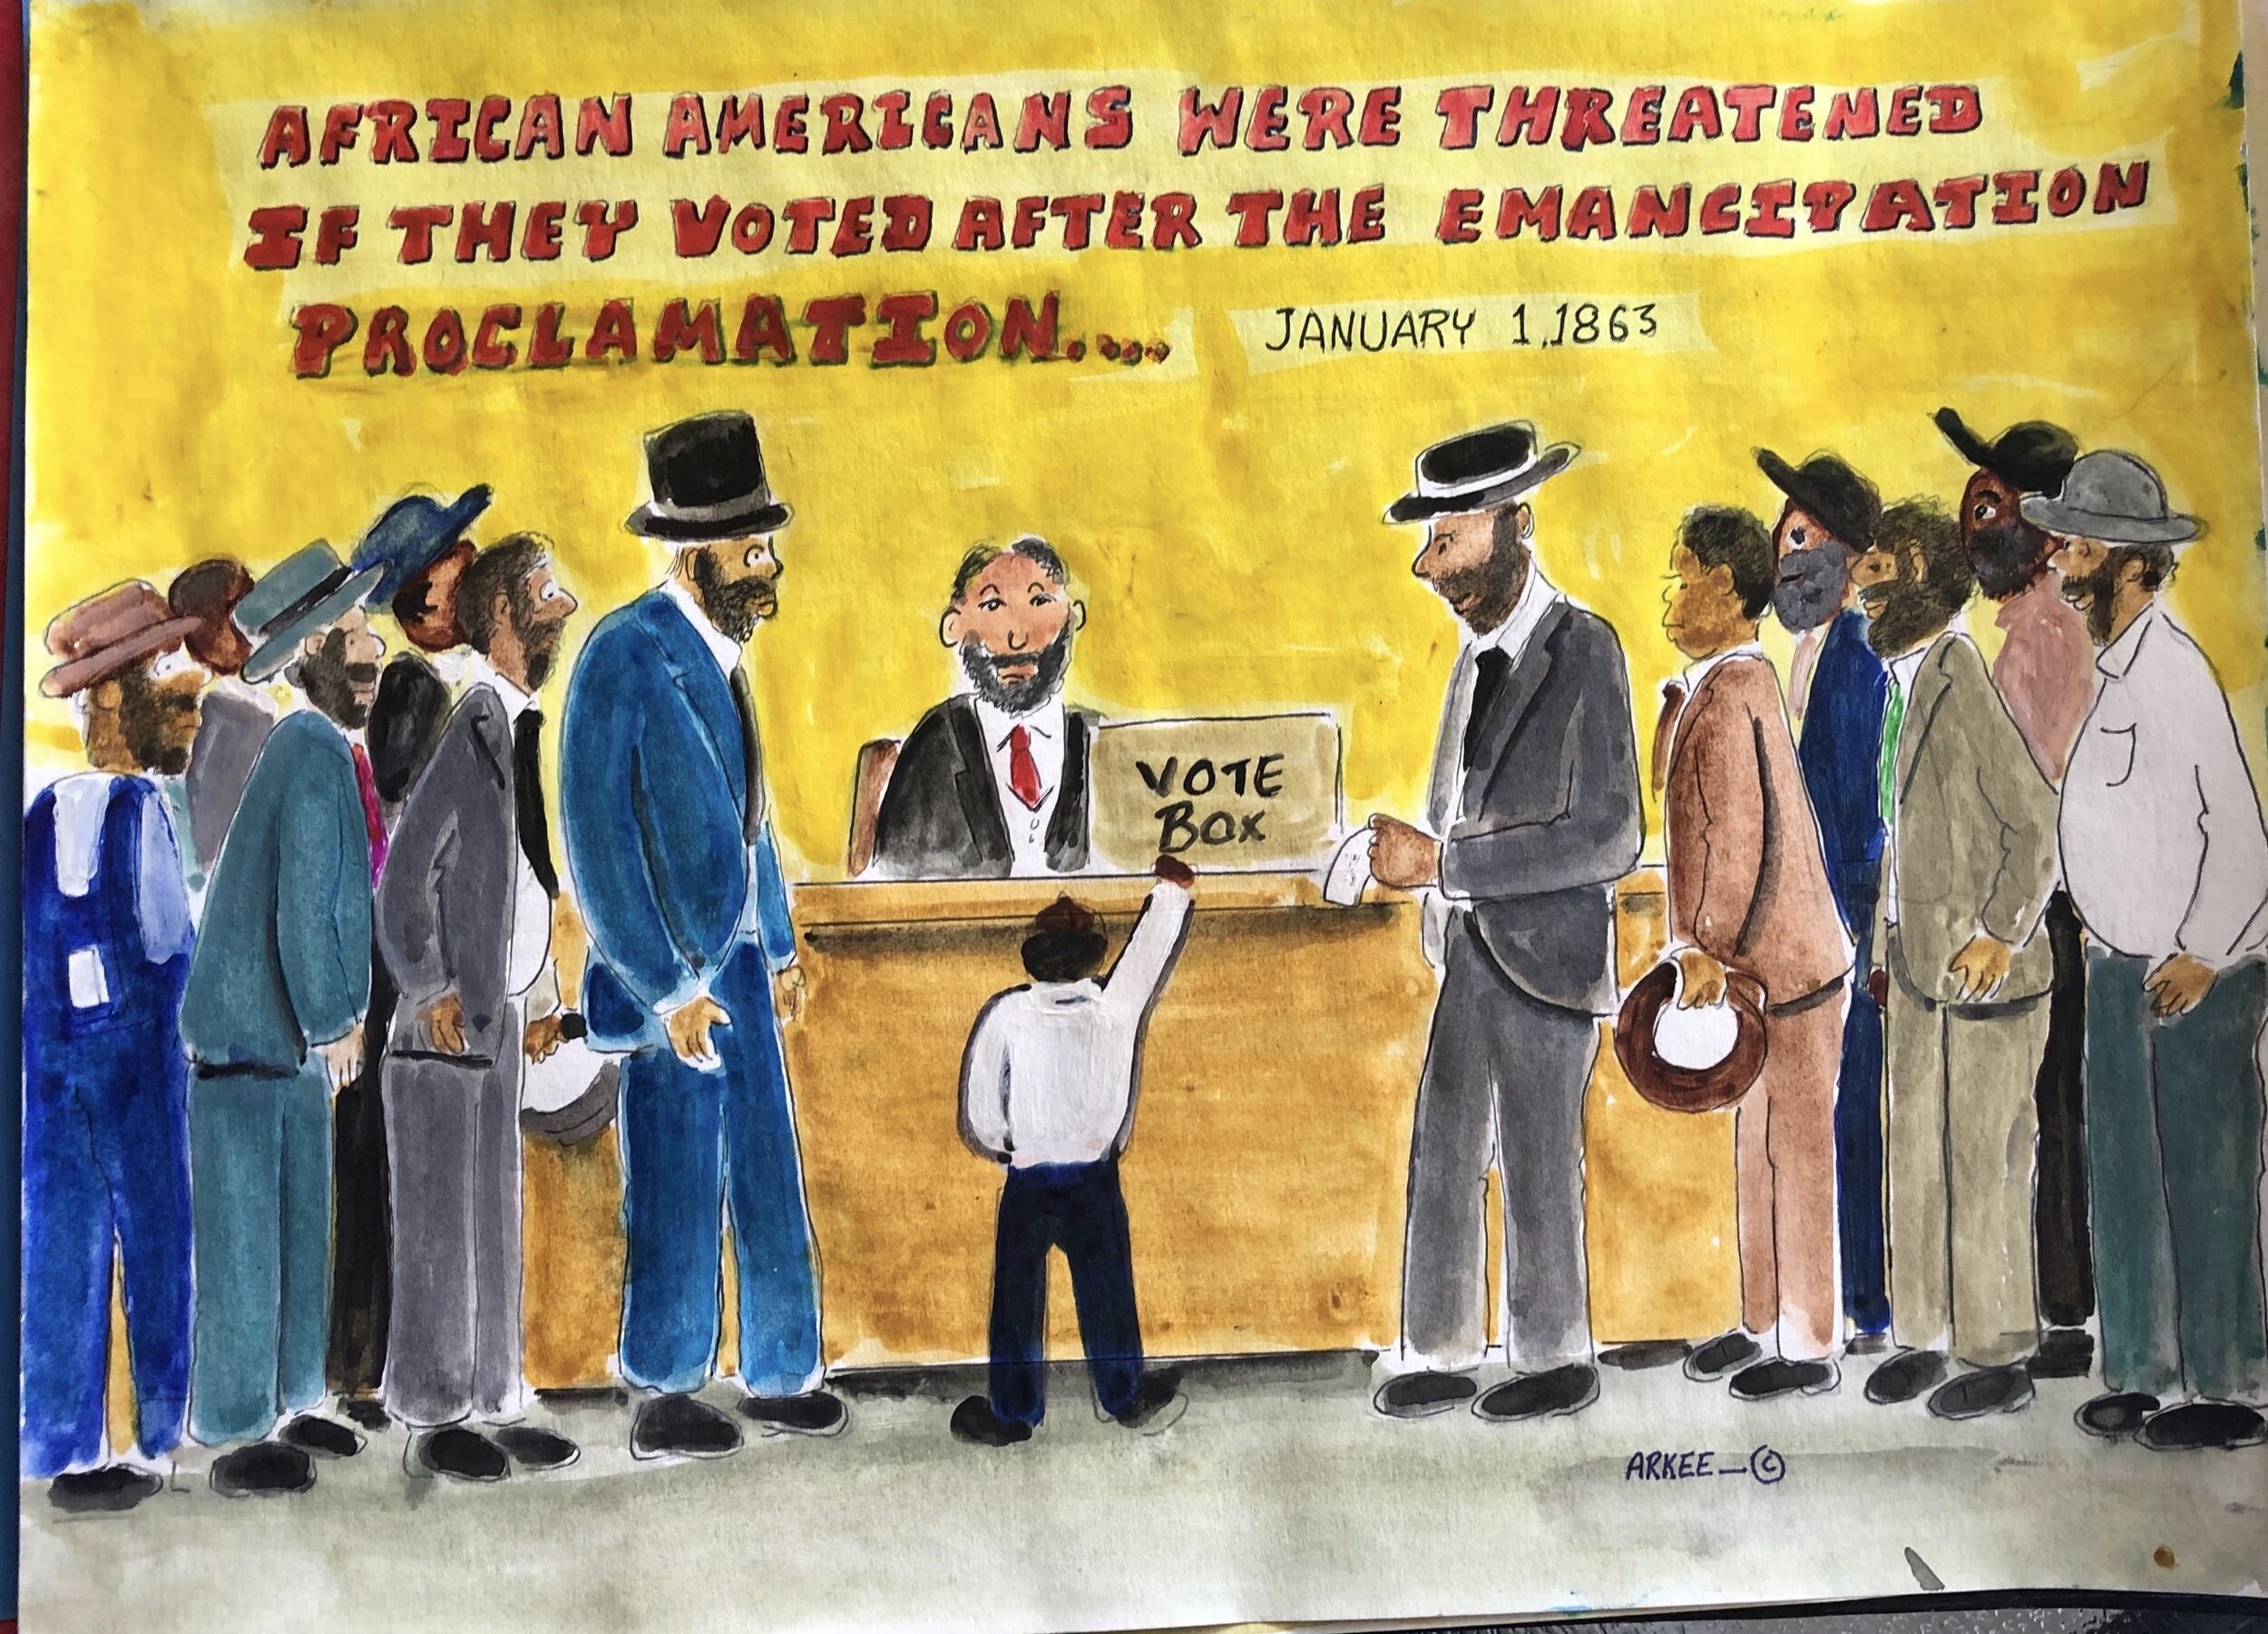 AFRICAN AMERICANS WERE THREATENED
IF THEY VOTED AFTER THE EMANCIPATION
PROCLAMATION.... JANUARY 1,1863
VOTE
BOX
ARKEE-©